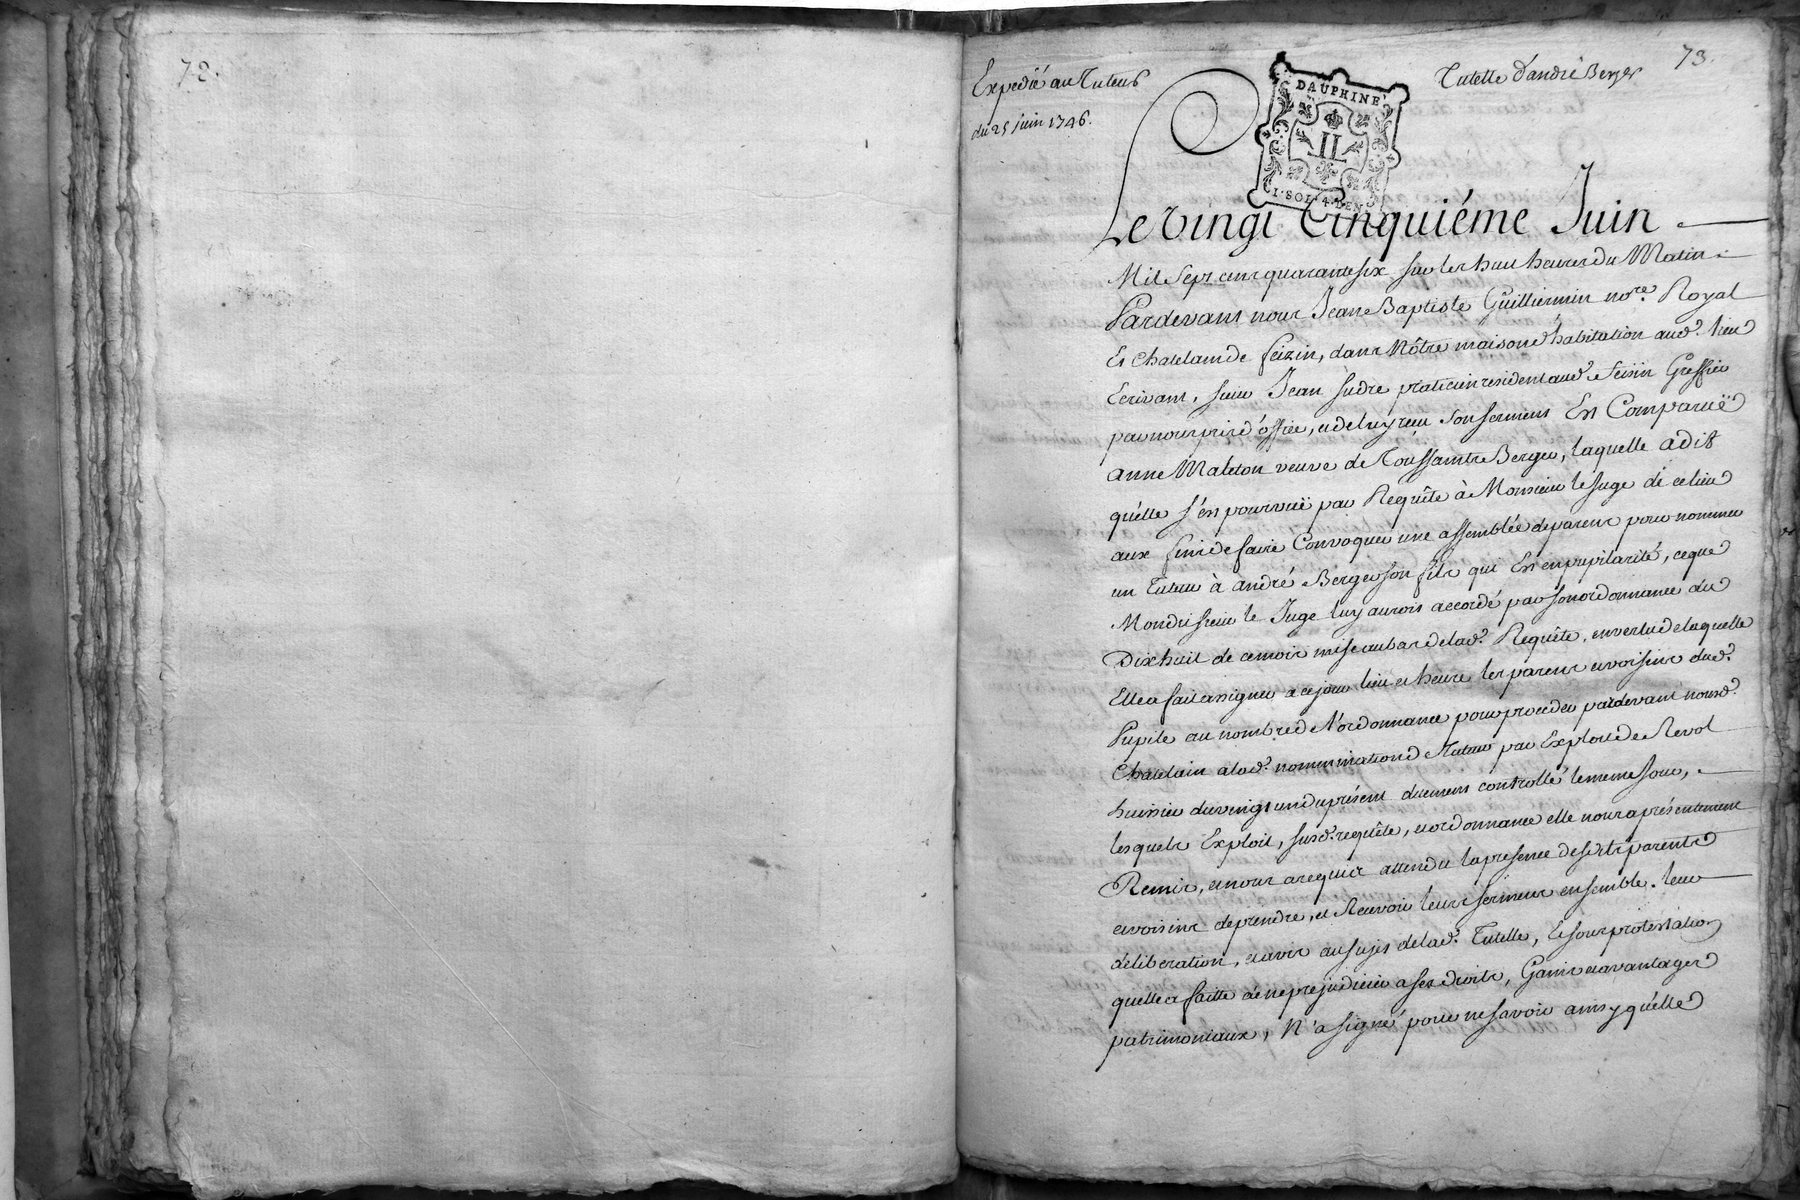 72.
73.
Expedié au Tuteur
du 25 juin 1746.
Tutelle d'andré Berger
DAUPHINE
II
1·SOL·4·DEN·
Le Vingt Cinquiéme Juin
Mil Sept cent quarante six sur les huit heures du Matin
Pardevant nous Jean Baptiste Guilliermin no.re Royal
Et Chatelain de feizin, dans Nôtre maison d'habitation aud. lieu
Ecrivant, sieur Jean sudre praticien resident aud. Feisin Greffier
par nous pris d'office, et de luy reçu son serment Est Comparuë
anne Maleton veuve de Toussaint Berger, laquelle a dit
qu'elle s'est pourvuë par Requête à Monsieur le Juge de ce lieu
aux fins de faire Convoquer une assemblée de parens pour nommer
un Tuteur à andré Berger son fils qui Est en pupilarité, ce que
Mondit sieur le Juge luy auroit accordé par son ordonnance du
Dixhuit de ce mois mise au bas de lad. Requête, en vertu de laquelle
Elle a fait assigner a ce jour lieu et heure les parens et voisins dud.
Pupile au nombre de l'ordonnance pour proceder pardevant nousd.
Chatelain a lad. nommination de Tuteur par Exploit de Revol
huissier du vingt un du présent duement controllé le meme jour,
lesquels Exploit, susd. requête, et ordonnance elle nous a présentement
Remis, et nous a requis attendu la presence desdits parents
et voisins de prendre, et Recevoir leurs serment ensemble leur
déliberation, et avis au sujet de lad. Tutelle, Et sous protestation
quelle a faitte de ne prejudicier a ses droits, Gains et avantages
patrimoniaux, N'a signé pour ne savoir ainsy qu'elle